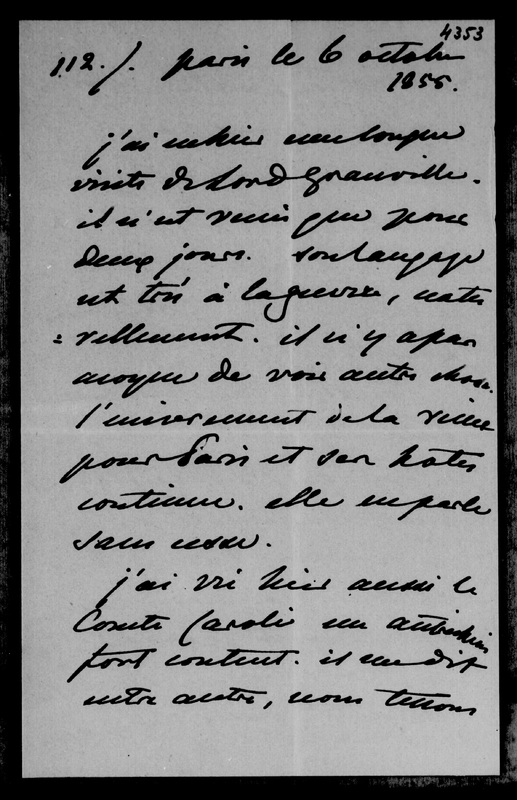 4353
112./. paris le 6 octobre
1855.
j'ai eu hier une longue
visite de Lord Granville.
il n'est venu que pour
deux jours. son langage
est très à la guerre, natu
=rellement. il n'y a pas
moyen de voir autre chose.
l'enivrement de la reine
pour Paris et ses hotes
continue. elle en parle
sans cesse.
j'ai vu hier aussi le
Comte Caroli un autrichien
fort content. il me dit
entre autre, nous tenons